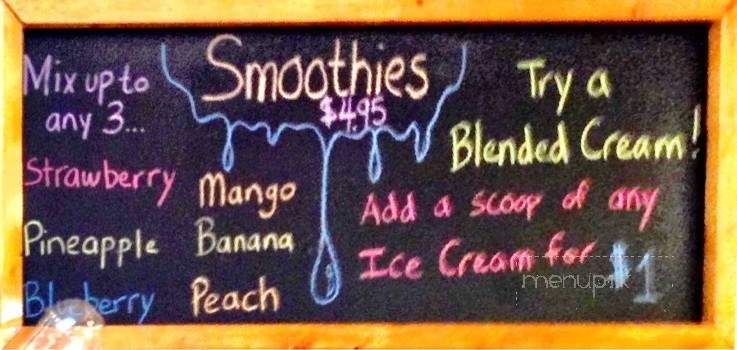 Mix up to
any 3...
Strawberry
Pineapple
Blueberry
Smoothies
$4.95
Mango
Banana
Peach
Try a
Blended Cream!
Add a scoop of any
Ice Cream for $1
menupix